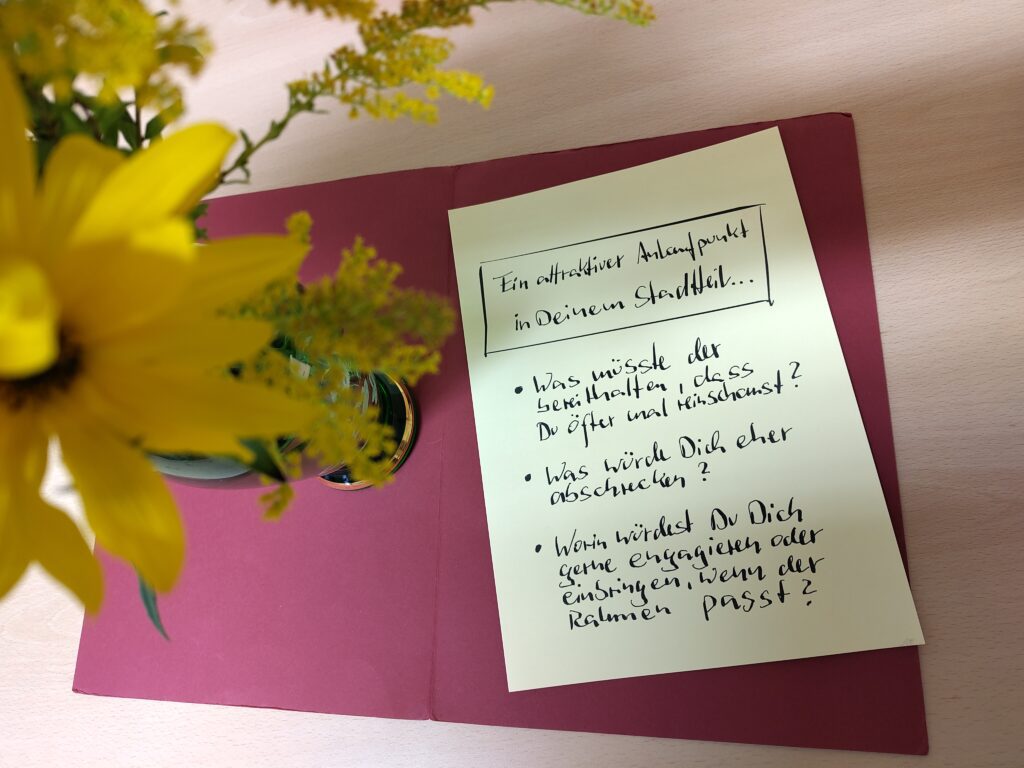 Ein attraktiver Anlaufpunkt
in Deinem Stadtteil...
• Was müsste der
bereithalten, dass
Du öfter mal reinschaust?
• Was würde Dich eher
abschrecken?
• Worin würdest Du Dich
gerne engagieren oder
einbringen, wenn der
Rahmen passt?